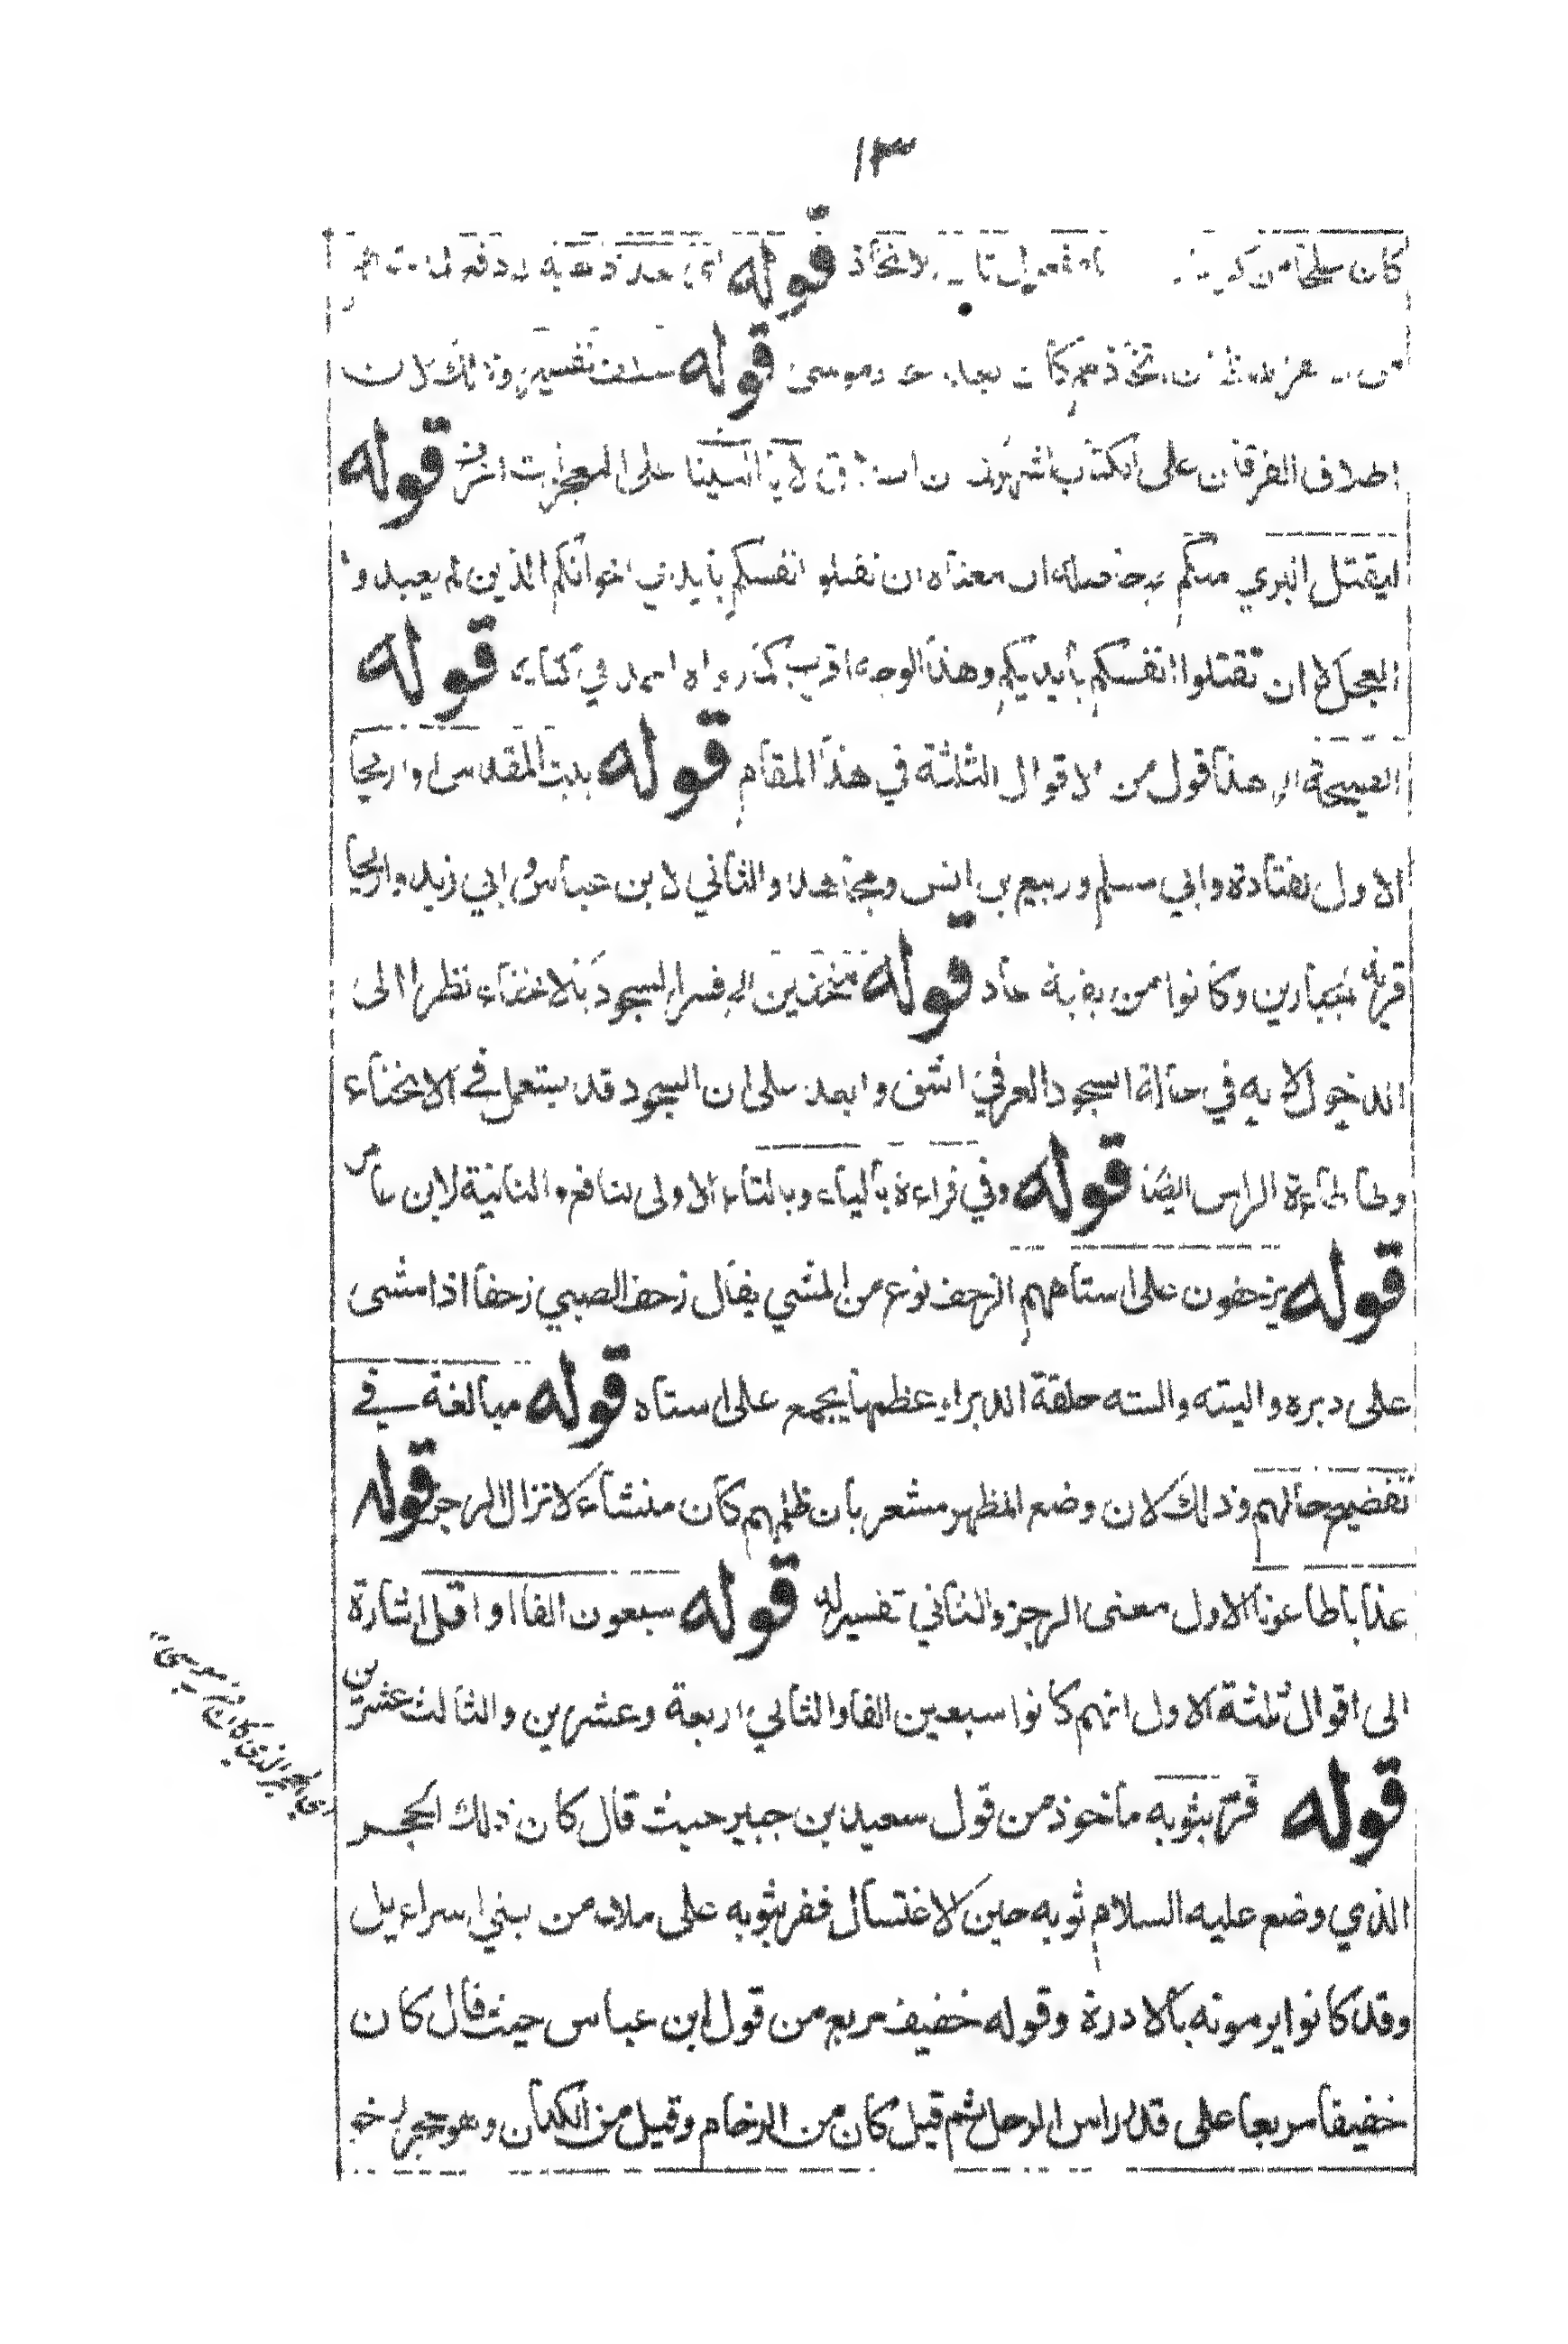 ١٣
كان قوله اي بعد ذهابه
قوله تفسيري وذلك لان
اطلاق الفرقان على الكتاب اشهر على المعجزات قوله
ليقتل البري منكم معناه ان تقتلوا انفسكم بايدي اخوانكم الذين لم يعبدوا
العجل لا ان تقتلوا انفسكم بايديكم وهذا الوجه اقرب كما رواه احمد في كتابه قوله
الصيحة هذا قول من الاقوال الثلثة في هذا المقام قوله بيت المقدس او اريحا
الاول لقتادة وابي مسلم وربيع بن انس ومجاهد والثاني لابن عباس وابي زيد واريحا
قرية لجبارين وكانوا من بقية عاد قوله منحنين فسر السجود بالانحناء نظرا الى
الدخول لانه في حالة السجود العرفي اشق وابعد على ان السجود قد يستعمل في الانحناء
وطأطأة الراس ايضا قوله وفي قراءة بالياء وبالتاء الاولى لنافع والثانية لابن عامر
قوله يزحفون على استاههم الزحف نوع من المشي يقال زحف الصبي زحفا اذا مشى
على دبره واليته والسته حلقة الدبر او عظمها يجمع على استاه قوله مبالغة في
تفضيح حالهم وذلك لان وضع المظهر مشعر بان ظلمهم كان منشاء لانزال الرجز قوله
عذابا طاعونا الاول معنى الرجز والثاني تفسير له قوله سبعون الفا او اقل اشارة
الى اقوال ثلثة الاول انهم كانوا سبعين الفا والثاني اربعة وعشرين والثالث عشرين
قوله فر بثوبه ماخوذ من قول سعيد بن جبير حيث قال كان ذلك الحجر
الذي وضع عليه السلام ثوبه حين الاغتسال ففر بثوبه على ملاء من بني اسراءيل
وقد كانوا يرمونه بالادرة وقوله خفيف مربع من قول ابن عباس حيث قال كان
خفيفا مربعا على قدر راس الرجل ثم قيل كان من الرخام وقيل من الكدان وهو حجر رخو